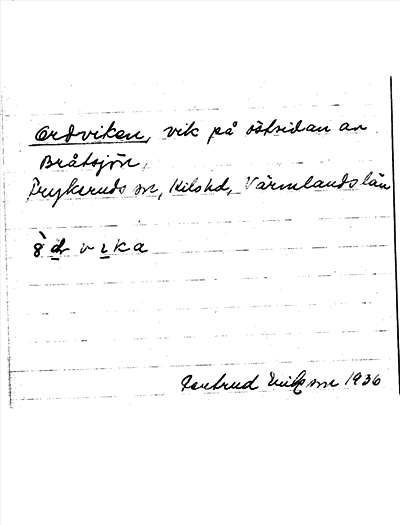 Ordviken, vik på östsidan av
Bråtsjön,
Frykeruds sn, Kils hd, Värmlands län
Gertrud Ericksson 1936